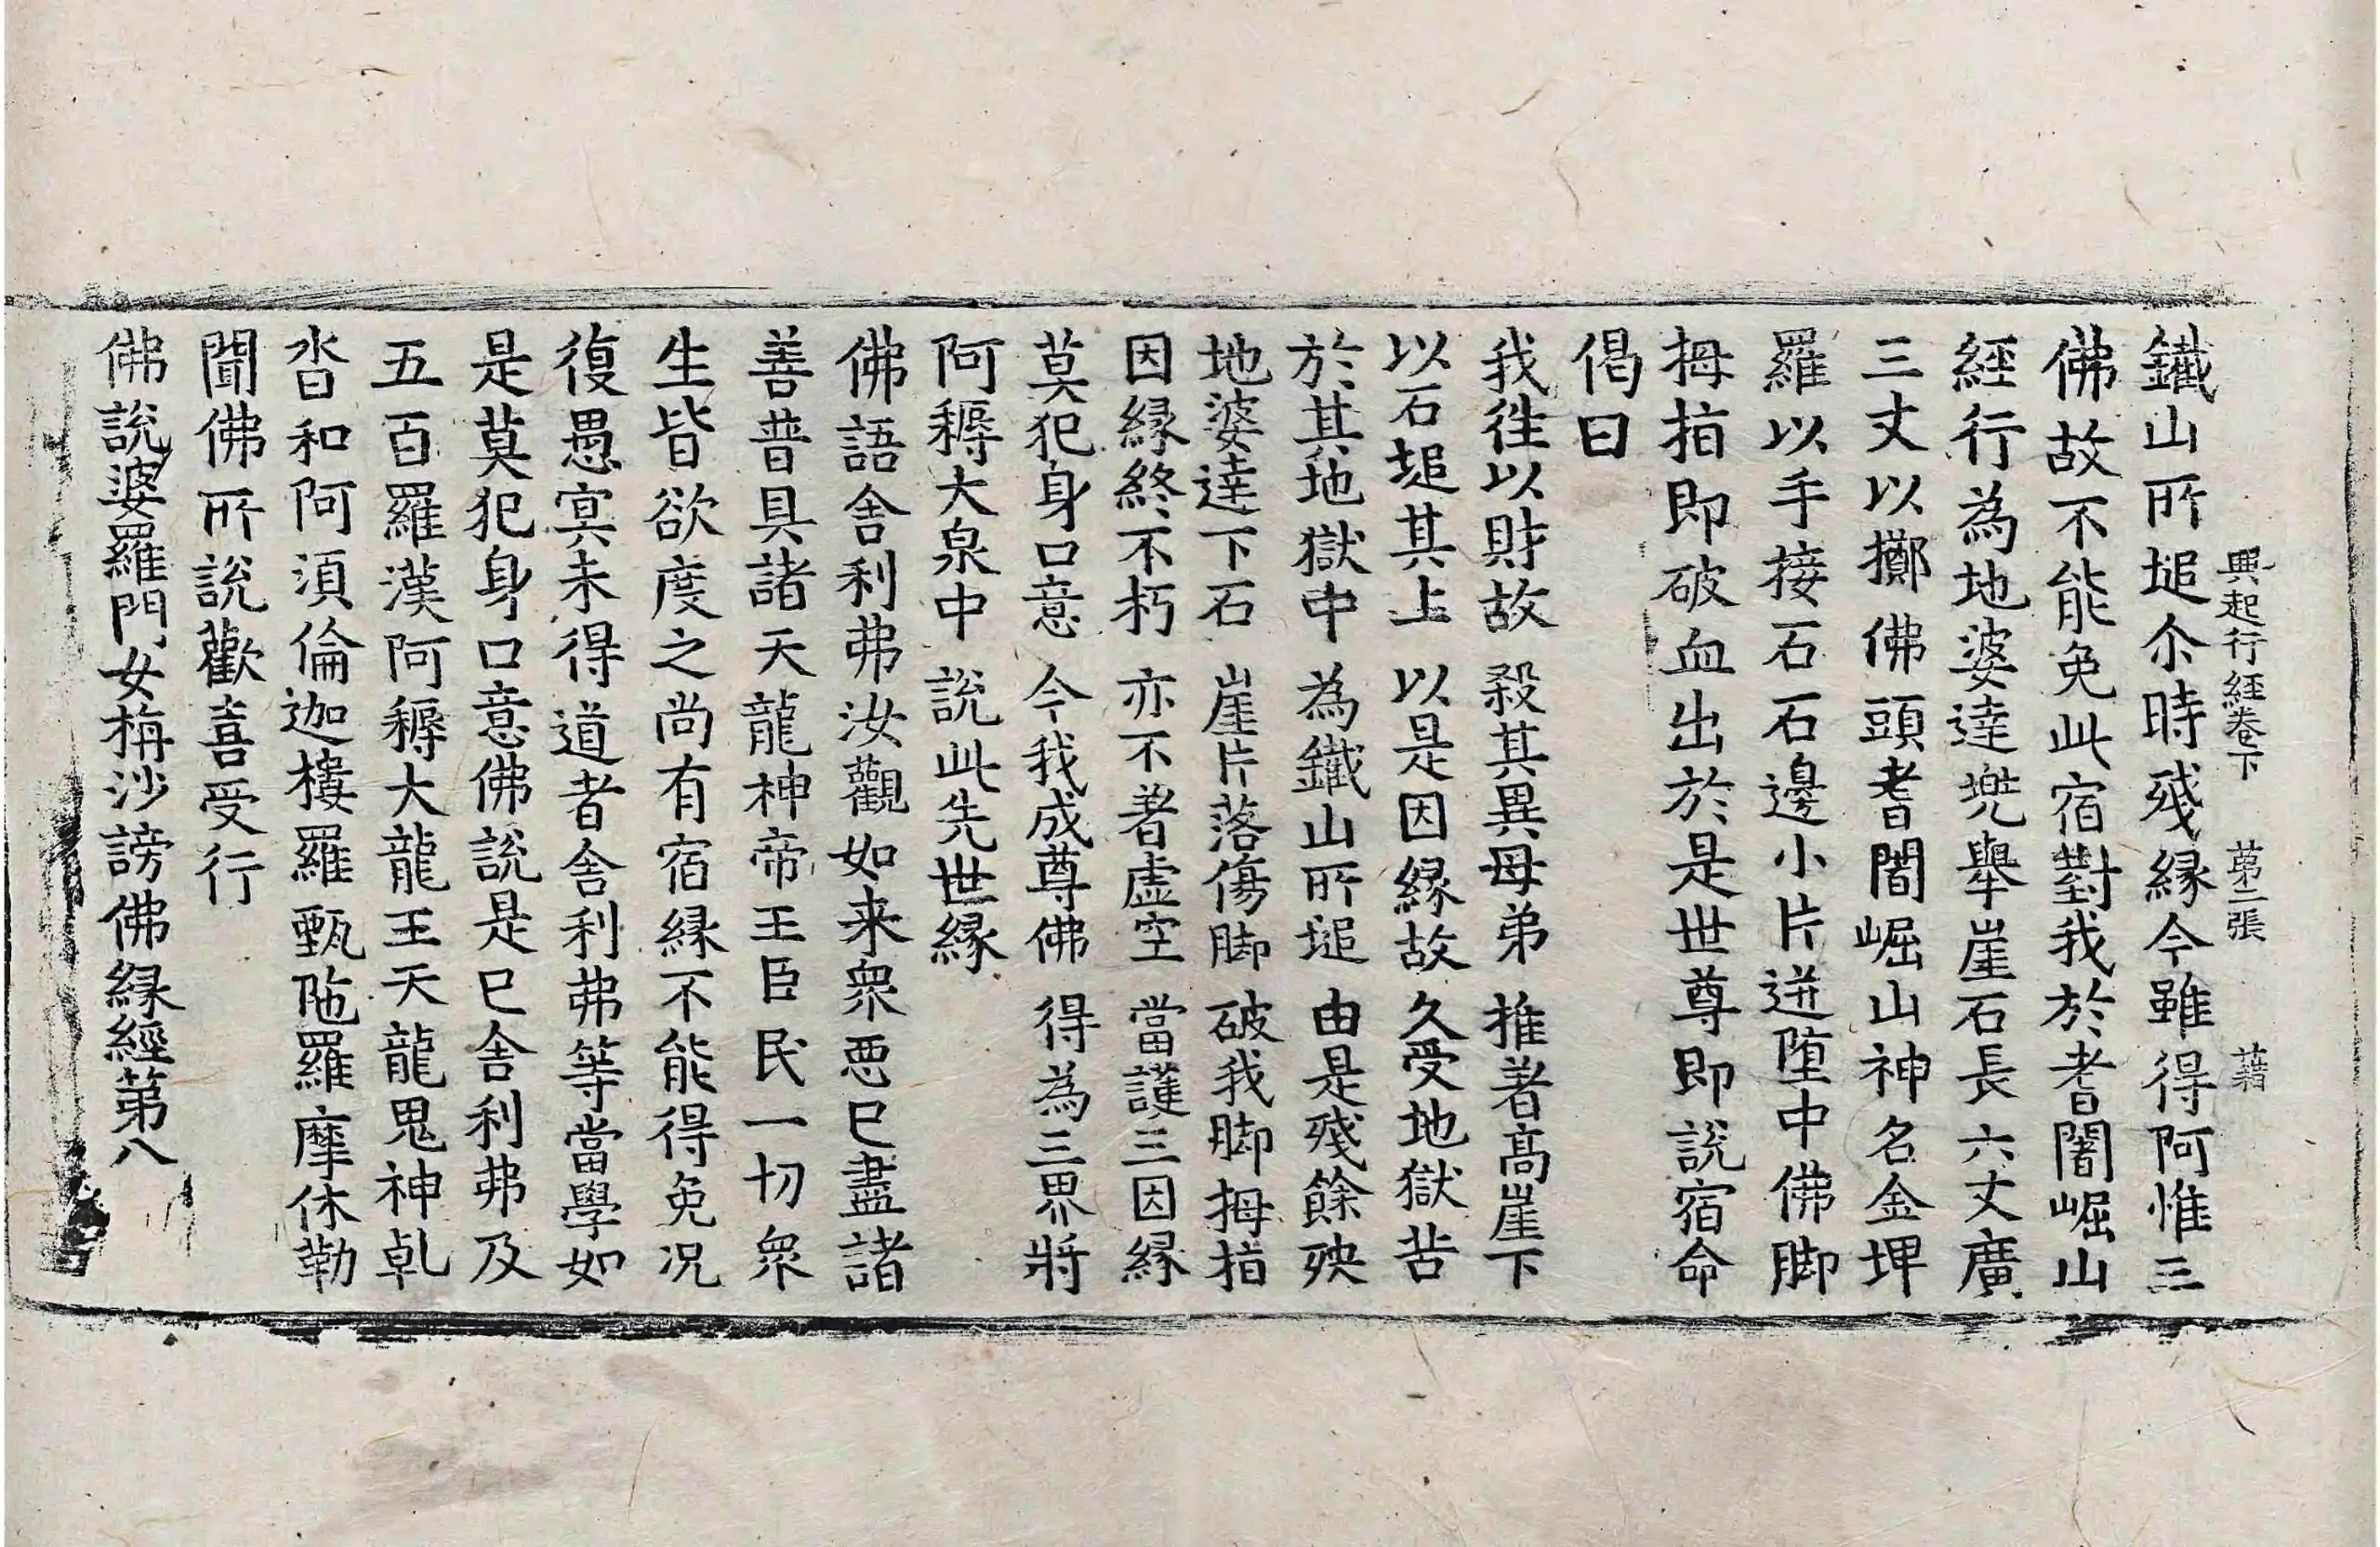 興起行經卷下　苐二張　藉
鐵山所塠尒時殘緣今雖得阿惟三
佛故不能免此宿對我於耆闍崛山
經行為地婆達兜舉崖石長六丈廣
三丈以擲佛頭耆闍崛山神名金埤
羅以手接石石邊小片迸墮中佛脚
拇指即破血出於是世尊即說宿命
偈曰
我往以財故　殺其異母弟　推著高崖下
以石塠其上　以是因緣故　久受地獄苦
於其地獄中　為鐵山所塠　由是殘餘殃
地婆達下石　崖片落傷脚　破我脚拇指
因緣終不朽　亦不著虛空　當護三因緣
莫犯身口意　今我成尊佛　得為三界將
阿耨大泉中　說此先世緣
佛語舍利弗汝觀如来衆惡已盡諸
善普具諸天龍神帝王臣民一切衆
生皆欲度之尚有宿緣不能得免况
復愚冥未得道者舍利弗等當學如
是莫犯身口意佛說是已舍利弗及
五百羅漢阿耨大龍王天龍鬼神乹
沓和阿須倫迦樓羅甄陁羅摩休勒
聞佛所說歡喜受行
佛說婆羅門女栴沙謗佛緣經苐八